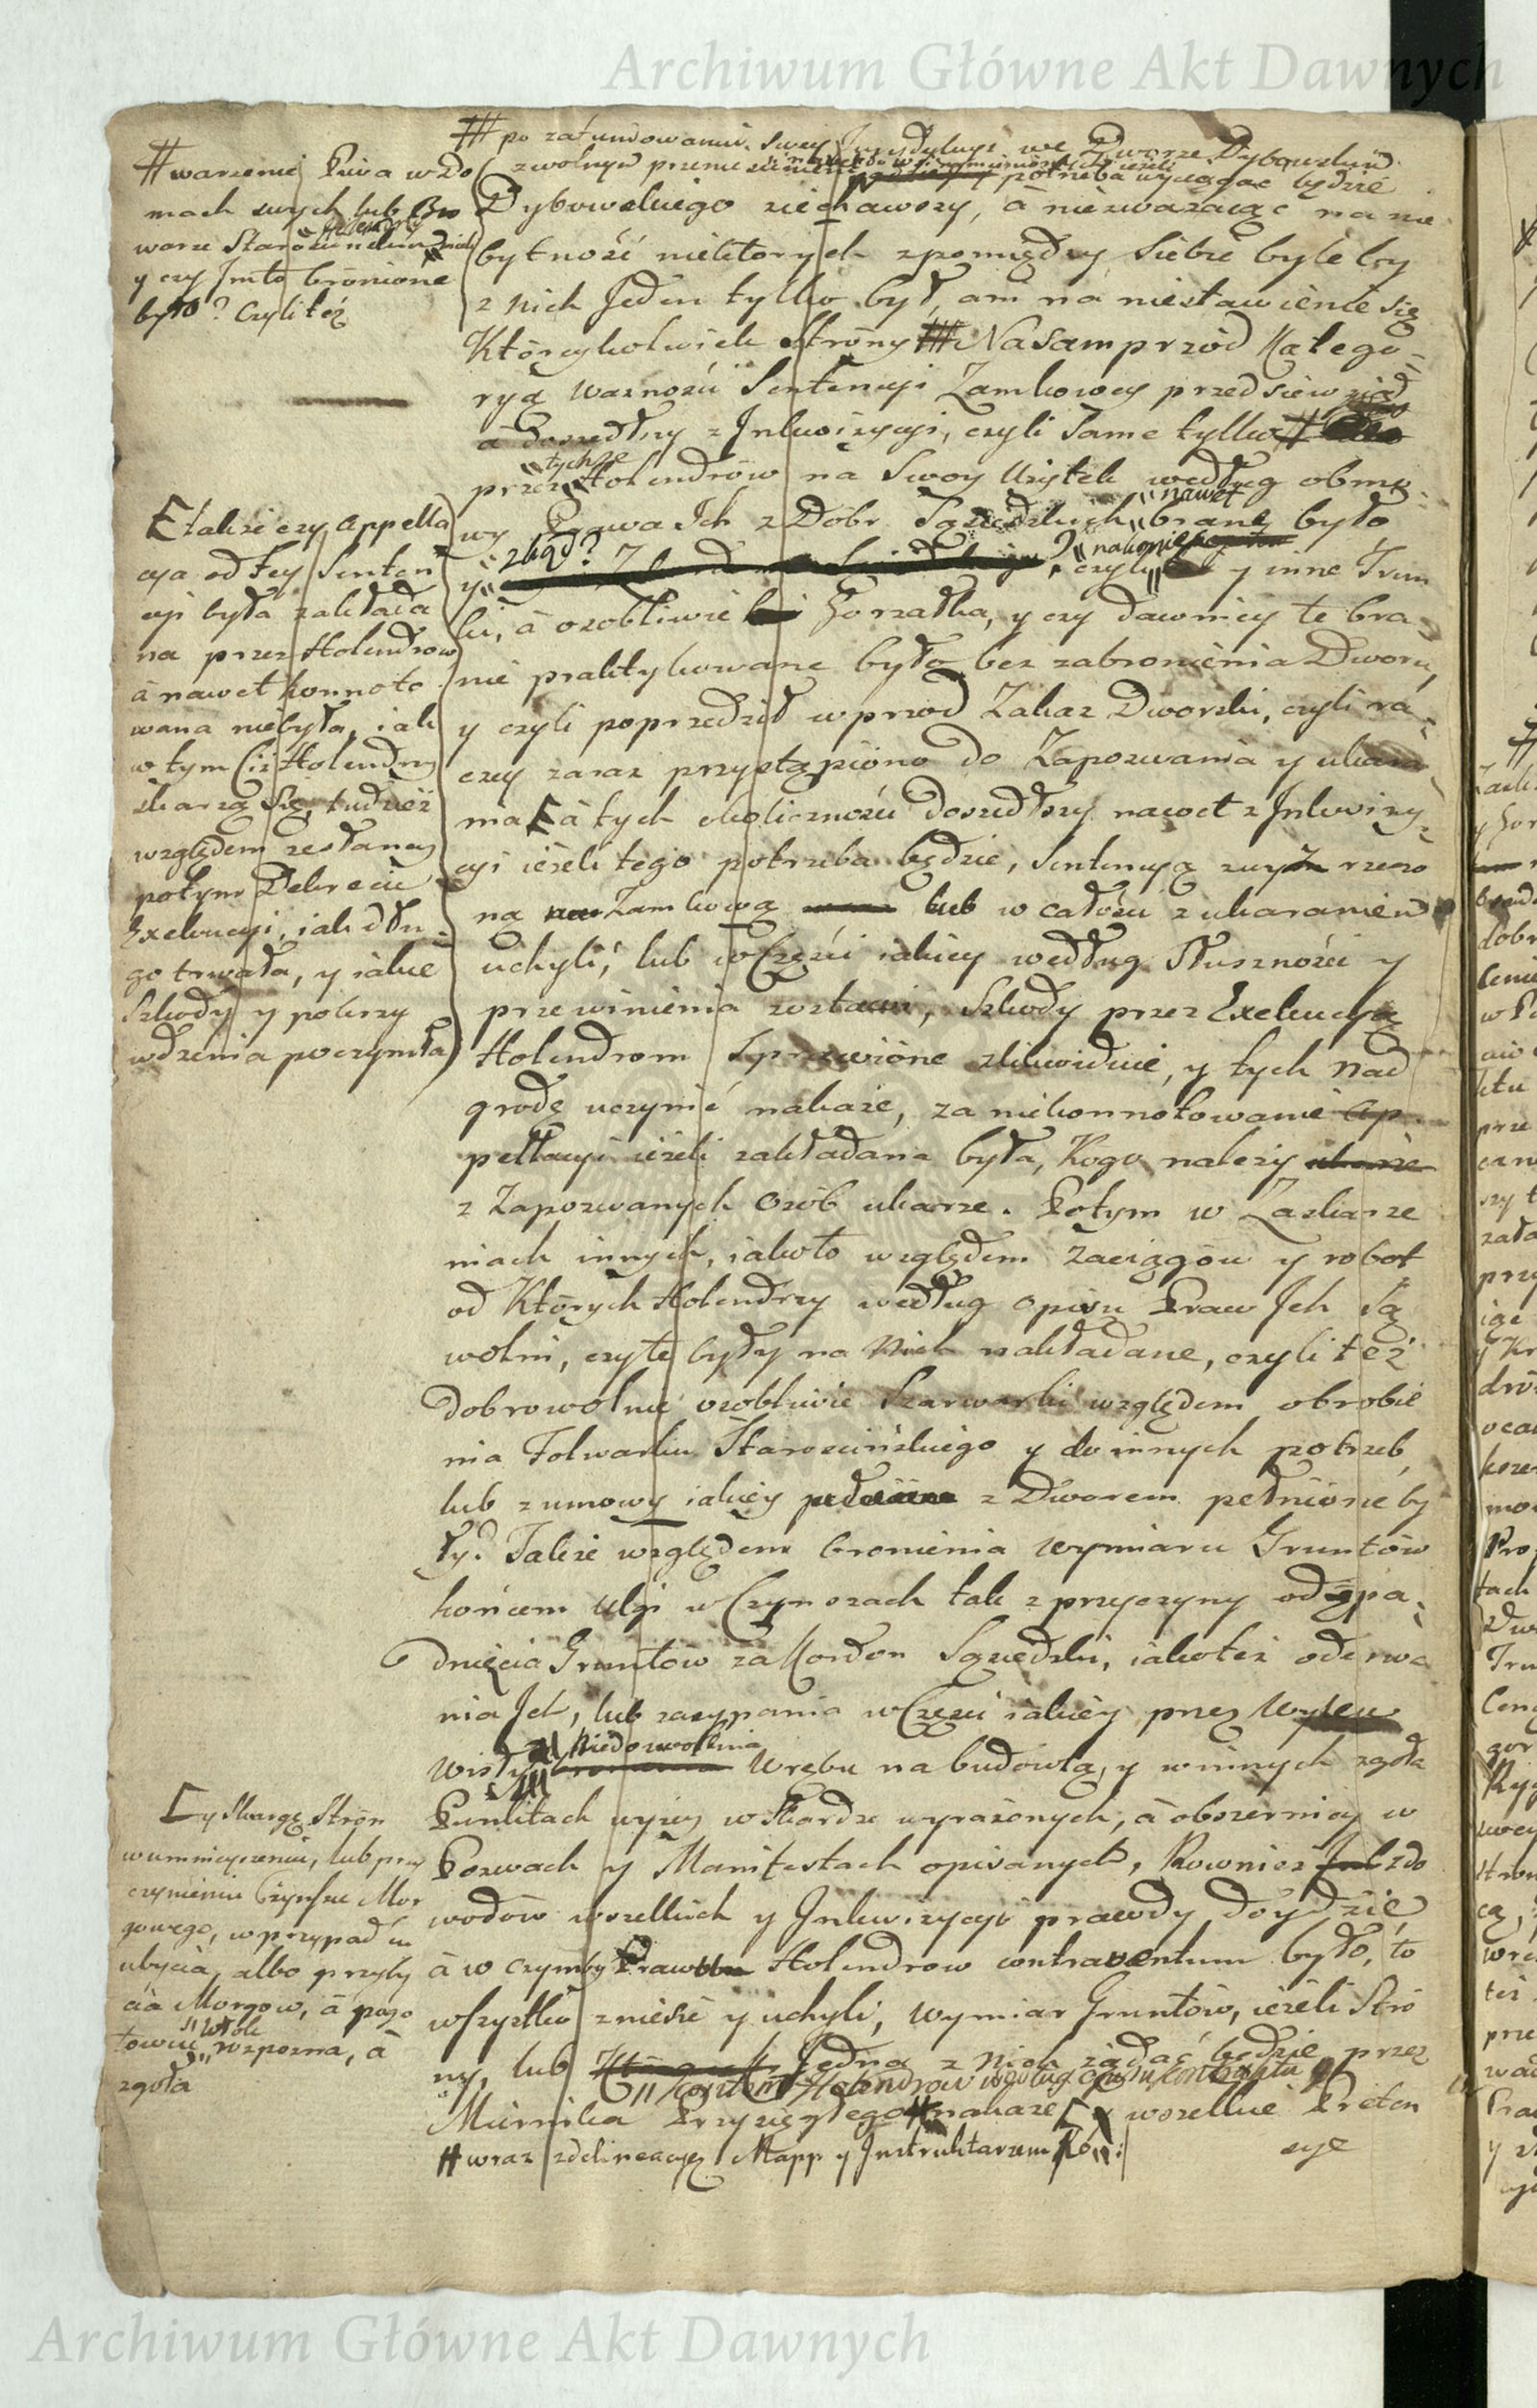 Archiwum Główne Akt Dawnych
# po zafundowaniu swey Jurydykcyi we Dworze Dybowskim
z wolnym przeniesieniem potrzeba wyciągać będzie
# warzenie Piwa w Do
mach swych lub Bro
warze Starościńskim
y czy Jmto bronione
było? Czyli też
Dybowskiego ziechawszy, à niezważaiąc na nie
bytność niektorych zpomiędzy Siebie byle by
z nich Jeden tylko był, ani na niestawienie się
Któreykolwiek Strony ## Nasamprzód Katego-
ryą ważności Sentencyi Zamkowey przedsiewziąć
à doszedłszy z Inkwizycyi, czyli same tylko #
przez "tychże" Holendrów na Swoy Użytek według obmo
wy Prawa Ich z Dóbr Sąsiedzkich "nawet" brane było
y "zkąd?" czyli "nakoniec" y inne Trun
ki, à osobliwie Gorzałka, y czy dawniey te bra-
nie praktykowane było bez zabronienia Dworu,
y czyli poprzedził wprzod Zakaz Dworski, czyli ra-
czey zaraz przystąpiono do Zapozwania y ukara
nia [ à tych okoliczności doszedłszy nawet z Inkwizy-
cyi ieżeli tego potrzeba będzie, Sentencyą rzeczo
ną Zamkową lub w całości z ukaraniem
uchyli, lub w Części iakiey według Słuszności y
przewinienia zostawi, Szkody przez Exekucyą
Holendrom Sprawione zlikwiduie, y tych nad
grodę uczynić nakaże, za niekonnotowanie Ap
pellacyi ieżeli zakładana była, Kogo należy
z Zapozwanych Osób ukarze. Potym w Zaskarże
niach innych, iakoto względem Zaciągów y robot
od Których Holendrzy według opisu Praw Ich Są
wolni, czy te były na Nich nakładane, czyli też
dobrowolnie osobliwie Szarwarki względem obrobie
nia Folwarku Starościńskiego y do innych potrzeb
lub z umowy iakiey z Dworem pełnione by
ły? Także względem bronienia Wymiaru Gruntów
końcem ulgi w Czynszach tak z przyczyny odpa-
dnięcia Gruntów za Kordon Sąsiedzki, iakoteż oderwa
nia Ich, lub zasypania w Części iakiey przez Wylew
Wisły niedozwolenia Wrębu na budowlą, y w innych zgoła
Punktach wyżey w Skardze wyrażonych, à obszerniey w
Pozwach y Manifestach opisanych, Rownież zdo
wodów wszelkich y Inkwizycyi prawdy doydzie
à w czymby Prawu Holendrow contraventum było, to
wszystko zniesie y uchyli, Wymiar Gruntów, ieżeli Stro
ny, lub Jedna z Nich żądać będzie przez
" kosztem Holendrow według opisu kontraktu
Miernika Przysięgłego # nakaże [ y wszelkie Preten
# wraz zdelineacyą Mapp y Instruktarzem
sye
[ takze czy Appella
cya od tey Senten
cyi była zakłada
na przez Holendrow
à nawet konnoto
wana niebyła, iak
w tym Ciż Holendrzy
skarżą się, tudzież
względem zesłaney
potym Dekrecie
Exekucyi, iak dłu-
go trwała, y iakie
Szkody y pokrzy
wdzenia poczyniła
[ y Skargę Stron
w umnieyszeniu, lub przy
czynieniu Czynszu Mor
gowego, w przypadku
ubycia, albo przyby
cia Morgow, à pozo
"wtole"
rozpozna, à
zgoła
Archiwum Główne Akt Dawnych